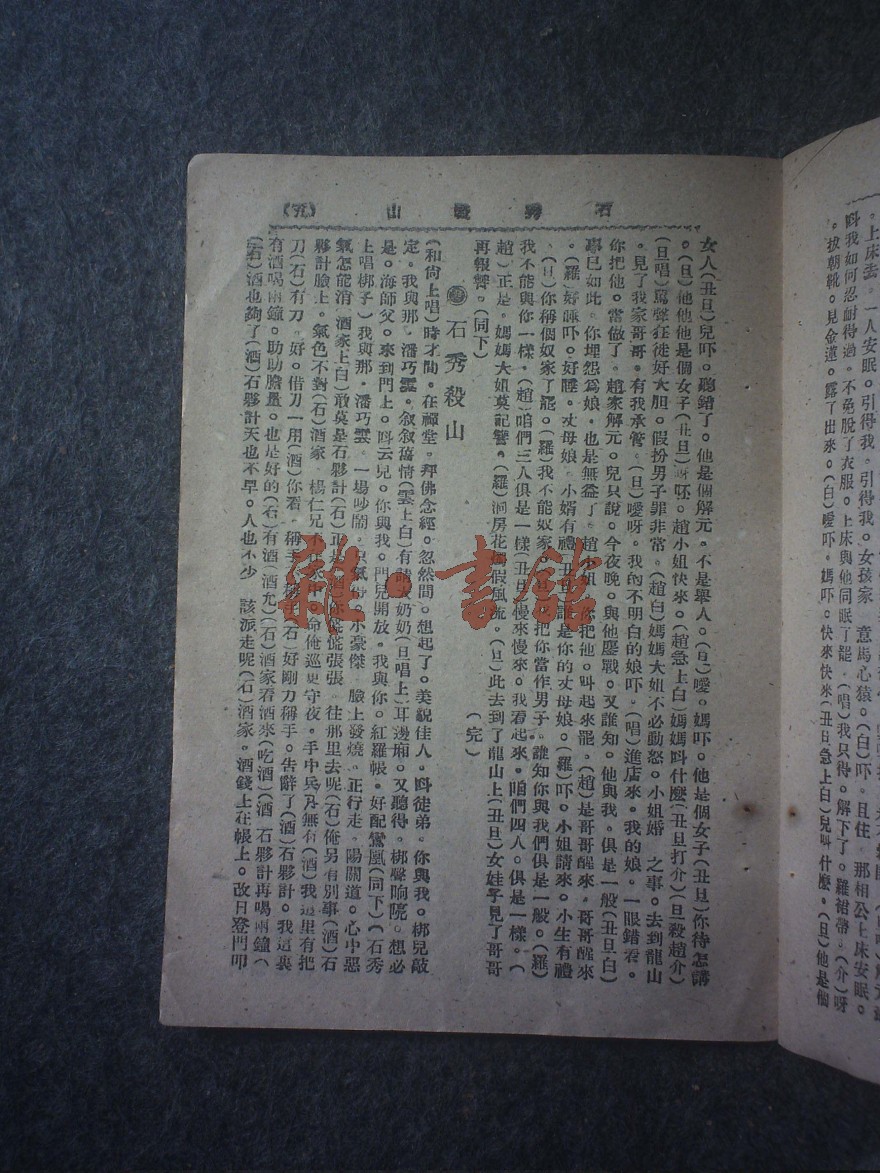 。上床去。一人安眠。引得我。引得我。女孩家 意馬心猿。(白)吓。且住 那相公上床安眠。
呌我如何忍耐得過。不免脫了衣服。上床與他同眠了罷。(唱)我只得。解下了。羅裙帶。(介)呀
。拔朝靴。見金蓮。露了出來。(白)噯吓。媽吓。快來快來(丑旦急上白)兒叫什麽。(旦)他是個
石秀殺山 (五)
女人(丑旦)兒吓。聽錯了。他是個解元。不是舉人。(旦)噯。媽吓。他是個女子(丑旦)你待怎講
。(旦)他他他是個女子(丑旦)呀呸。趙小姐快來。(趙急上白)媽媽呌什麽(丑旦打介)(旦殺趙介)
(旦唱)罵聲狂徒好大胆。假扮男子罪非常。(趙白)媽媽大姐不必動怒。小姐婚 之事。去到龍山
。見了我家哥哥。有我承管。(旦)噯呀。我的不明白的娘吓。(唱)進店來。我的娘。一眼錯看。
你把他。當做了。趙家解元。兒只說。今夜晚。與他鏖戰。又誰知。他與我。俱是一般(丑旦白)
事已如此。你埋怨爲娘。也是無益了。趙小姐。你把他。呌起來罷。(趙)是哥哥醒來。哥哥醒來
。(羅)好睡吓。好睡。丈母娘。小婿有禮(丑旦)誰是你的丈母娘。(羅)吓。小姐請來。小生有禮
。(旦)你稱個奴家了罷。(羅)我不能奴家。 把你當作男子。誰知你與我們俱是一般。(羅)
我不能與你一樣。(趙)咱們三人俱是一樣(丑旦)慢來慢來。我看起來。咱們四人。俱是一樣。(
趙)正是。媽媽大姐莫記讐。(羅)洞房花燭假風流。(旦)此去到了龍山上(丑旦)女娃子見了哥哥
再報讐。(同下) (完)
石秀殺山
(和尚上唱)時才間。在禪堂。拜佛念經。忽然間。想起了。美貌佳人。呌徒弟。你與我。梆兒敲
定。我與那。潘巧雲。敘敘舊情(雲上白)有請大奶奶(旦唱上)耳邊廂。又聽得。梆聲响喨。想必
是。海師父。來到門上。呌云兒。你與我。門兒開放。我與你。紅羅帳。好配鸞凰(同下)(石秀
上唱梆子)我與那。潘巧雲。一場吵鬧。 氣 。小豪傑 臉上發燒。正行走。陽關道。心中惡
氣怎能消(酒家上白)敢莫是石夥計(石)正是(酒)你慌慌張張 往那里去呢(石)俺另有別事(酒)石
夥計臉上。氣色不對(石)酒家 楊仁兄不在家中。命俺巡更守夜。手中兵刃無有(酒)我這里有把
刀(石)有刀。好。借刀一用(酒)你看。稱手 手(石)好剛刀稱手。告辭了(酒)石夥計。我這裏
有酒喝兩鐘。助助膽量。也是好的(石)有酒(酒允)(石)酒家看酒來(吃酒)(酒 石夥計再喝兩鐘(
(石)酒也夠了(酒)石夥計天也不早。人也不少 該派走呢(石)酒家。酒錢上在帳上。改日登門叩
雜·書館